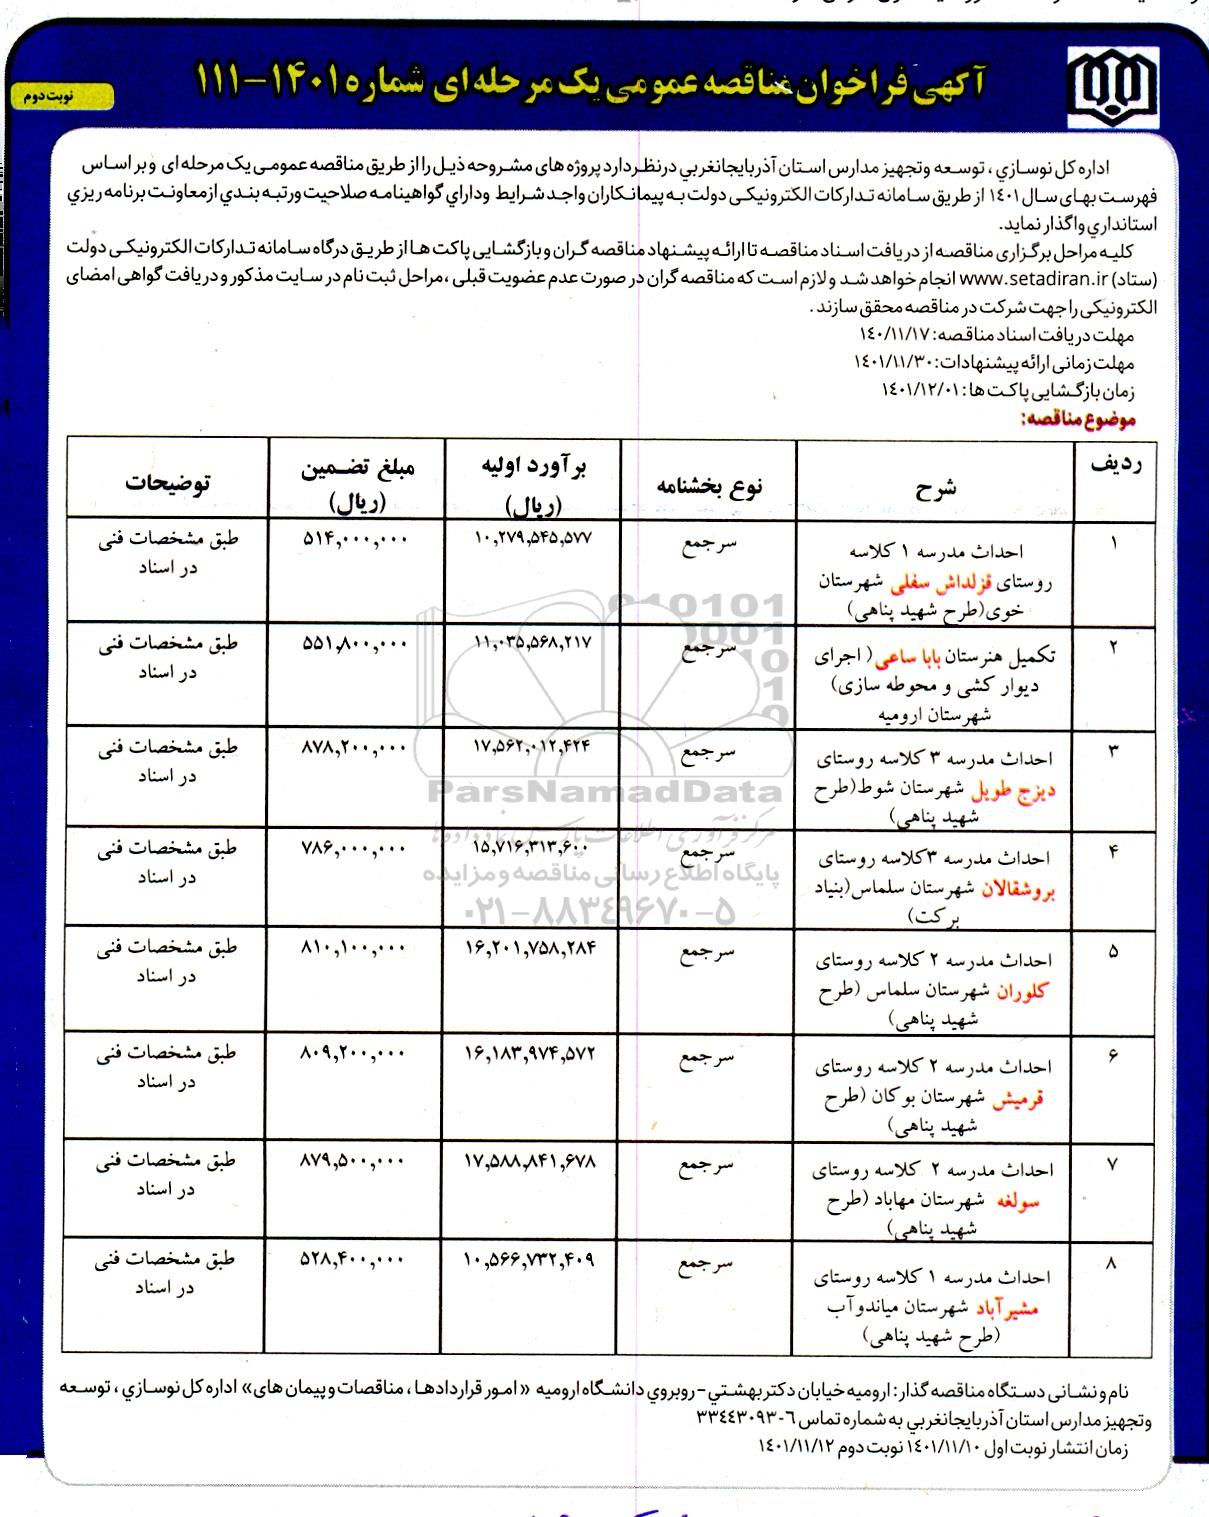 آگهی فراخوان مناقصه عمومی یک مرحله ای شماره ۱۴۰۱-۱۱۱
نوبت دوم
اداره کل نوسازي ، توسعه وتجهیز مدارس استان آذربایجانغربي درنظر دارد پروژه های مشروحه ذیل را از طریق مناقصه عمومی یک مرحله ای وبر اساس
فهرست بهای سال ۱۴۰۱ از طریق سامانه تدارکات الکترونیکی دولت به پیمانکاران واجد شرایط وداراي گواهینامه صلاحیت ورتبه بندي از معاونت برنامه ریزي
استانداري واگذار نماید.
کلیه مراحل برگزاری مناقصه از دریافت اسناد مناقصه تا ارائه پیشنهاد مناقصه گران و بازگشایی پاکت ها از طریق درگاه سامانه تدارکات الکترونیکی دولت
(ستاد) www.setadiran.ir انجام خواهد شد و لازم است که مناقصه گران در صورت عدم عضویت قبلی ، مراحل ثبت نام در سایت مذکور و دریافت گواهی امضای
الکترونیکی را جهت شرکت در مناقصه محقق سازند .
مهلت دریافت اسناد مناقصه: ۱۴۰/۱۱/۱۷
مهلت زمانی ارائه پیشنهادات: ۱۴۰۱/۱۱/۳۰
زمان بازگشایی پاکت ها : ۱۴۰۱/۱۲/۰۱
موضوع مناقصه:
ردیف شرح نوع بخشنامه برآورد اولیه (ریال) مبلغ تضمین (ریال) توضیحات
۱ احداث مدرسه ۱ کلاسه سرجمع ۱۰,۲۷۹,۵۴۵,۵۷۷ ۵۱۴,۰۰۰,۰۰۰ طبق مشخصات فنی
روستای قزلداش سفلی شهرستان در اسناد
خوی(طرح شهید پناهی)
۲ تکمیل هنرستان بابا ساعی( اجرای سرجمع ۱۱,۰۳۵,۵۶۸,۲۱۷ ۵۵۱,۸۰۰,۰۰۰ طبق مشخصات فنی
دیوار کشی و محوطه سازی) در اسناد
شهرستان ارومیه
۳ احداث مدرسه ۳ کلاسه روستای سرجمع ۱۷,۵۶۲,۰۱۲,۴۲۴ ۸۷۸,۲۰۰,۰۰۰ طبق مشخصات فنی
دیزج طویل شهرستان شوط(طرح در اسناد
شهید پناهی)
۴ احداث مدرسه ۳کلاسه روستای سرجمع ۱۵,۷۱۶,۳۱۳,۶۰۰ ۷۸۶,۰۰۰,۰۰۰ طبق مشخصات فنی
بروشقالان شهرستان سلماس(بنیاد در اسناد
برکت)
۵ احداث مدرسه ۲ کلاسه روستای سرجمع ۱۶,۲۰۱,۷۵۸,۲۸۴ ۸۱۰,۱۰۰,۰۰۰ طبق مشخصات فنی
کلوران شهرستان سلماس (طرح در اسناد
شهید پناهی)
۶ احداث مدرسه ۲ کلاسه روستای سرجمع ۱۶,۱۸۳,۹۷۴,۵۷۲ ۸۰۹,۲۰۰,۰۰۰ طبق مشخصات فنی
قرمیش شهرستان بوکان (طرح در اسناد
شهید پناهی)
۷ احداث مدرسه ۲ کلاسه روستای سرجمع ۱۷,۵۸۸,۸۴۱,۶۷۸ ۸۷۹,۵۰۰,۰۰۰ طبق مشخصات فنی
سولغه شهرستان مهاباد (طرح در اسناد
شهید پناهی)
۸ احداث مدرسه ۱ کلاسه روستای سرجمع ۱۰,۵۶۶,۷۳۲,۴۰۹ ۵۲۸,۴۰۰,۰۰۰ طبق مشخصات فنی
مشیرآباد شهرستان میاندوآب در اسناد
(طرح شهید پناهی)
ParsNamadData
پایگاه اطلاع رسانی مناقصه و مزایده
۰۲۱-۸۸۳۴۹۶۷۰-۵
نام و نشانی دستگاه مناقصه گذار: ارومیه خیابان دکتر بهشتي - روبروي دانشگاه ارومیه « امور قراردادها ، مناقصات و پیمان های» اداره کل نوسازي ، توسعه
وتجهیز مدارس استان آذربایجانغربي به شماره تماس ۶-۳۳۴۴۳۰۹۳
زمان انتشار نوبت اول ۱۴۰۱/۱۱/۱۰ نوبت دوم ۱۴۰۱/۱۱/۱۲